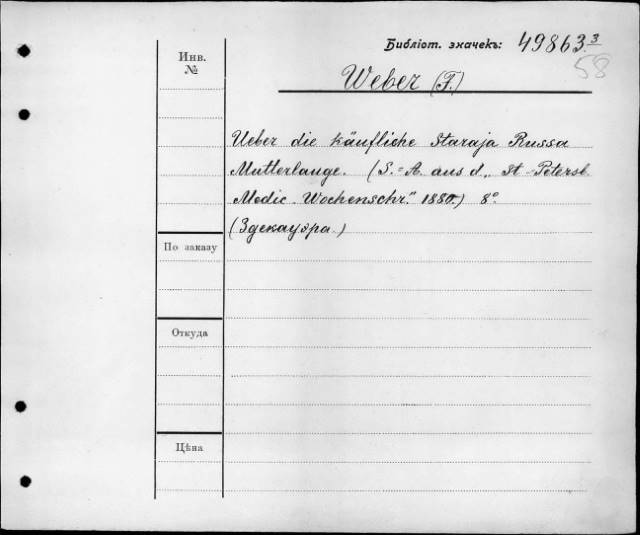 Библіот. значекъ: 49863 3
58
Инв.
№
Weber (F.)
Ueber die käufliche Staraja Russa
Mutterlauge. (S.=A. aus d. „St-Petersb.
Medic. Wochenschr." 1880.) 8°.
(Здекауэра.)
По заказу
Откуда
Цѣна